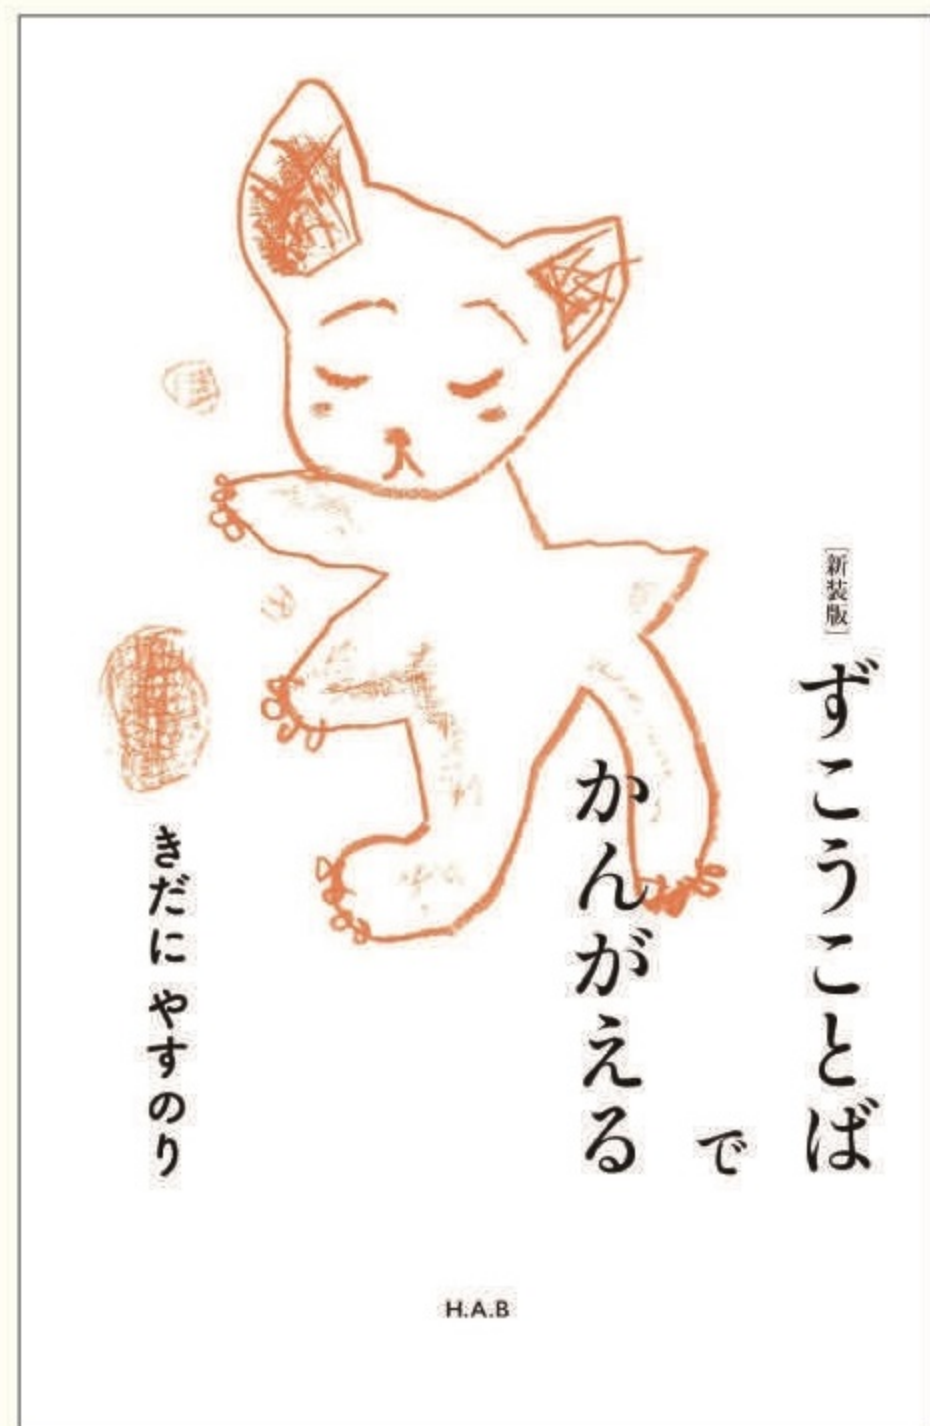 ［新装版］
ずこうことば
で
かんがえる
きだに やすのり
H.A.B